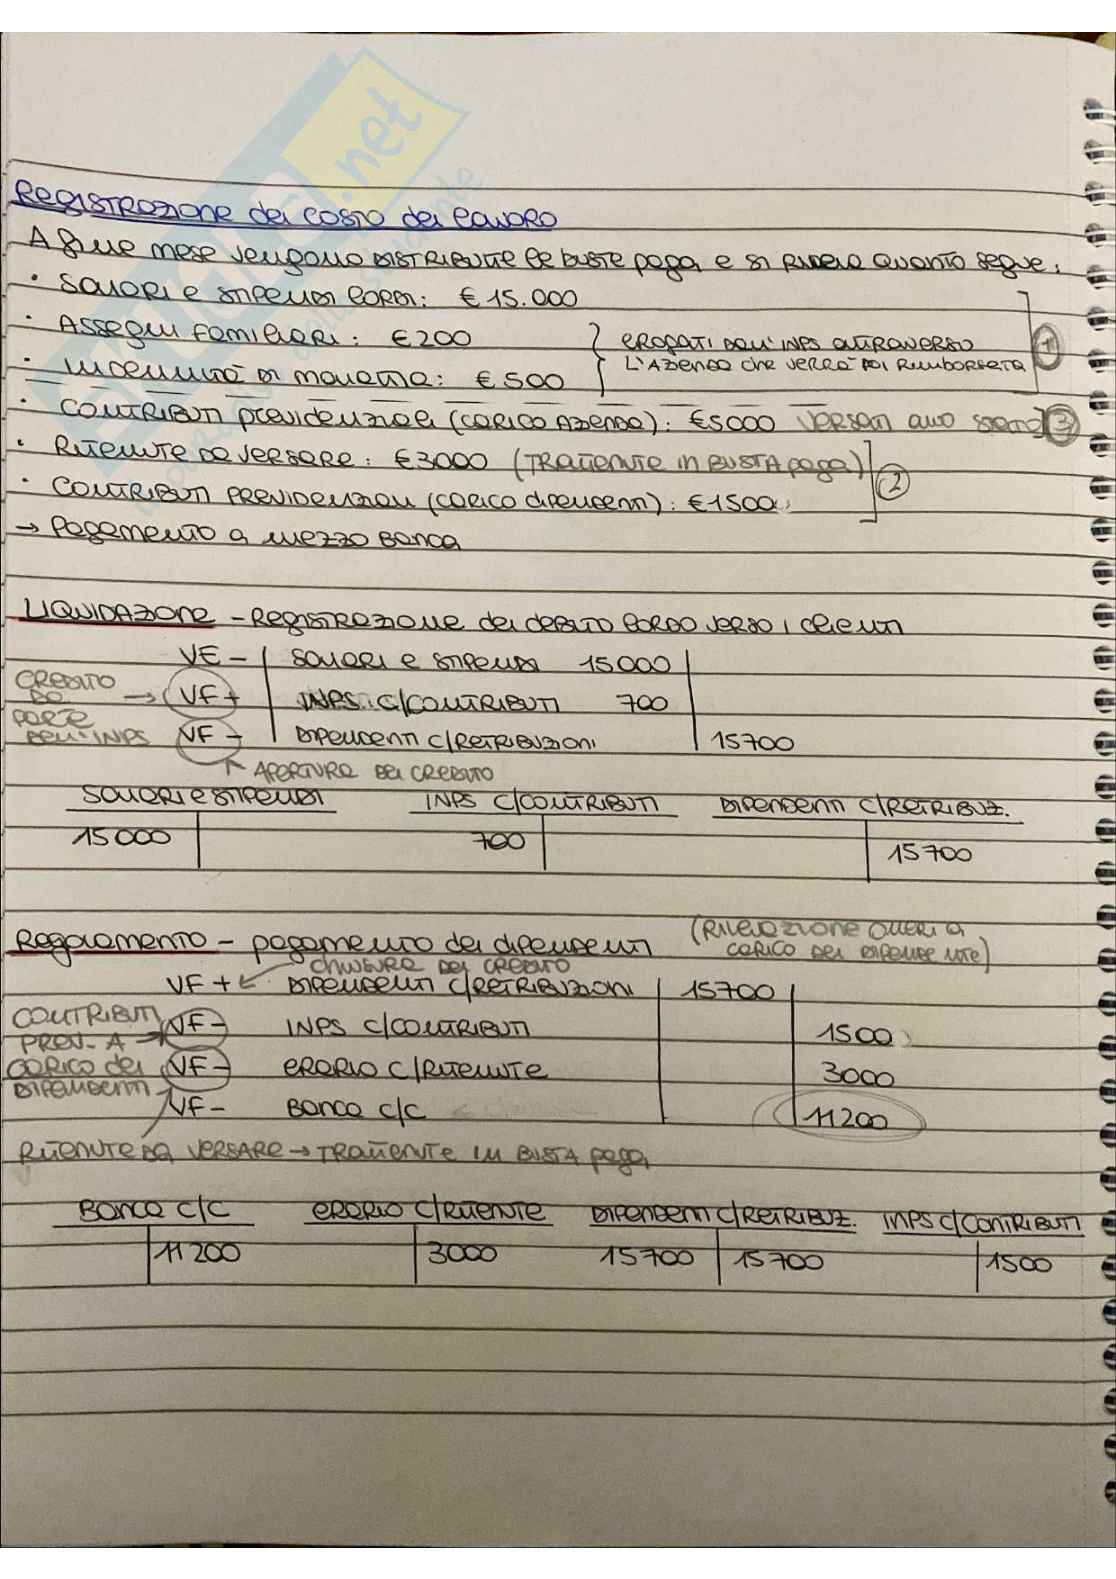 Registrazione del costo del lavoro
A fine mese vengono distribuite le buste paga e si rileva quanto segue:
· Salari e stipendi lordi: € 15.000
· Assegni familiari: € 200 } erogati dall'INPS attraverso
· Indennità di malattia: € 500 { l'azienda che verrà poi rimborsata
1
· Contributi previdenziali (carico azienda): €5000 versati allo stato 3
· Ritenute da versare: €3000 (trattenute in busta paga)
· Contributi previdenziali (carico dipendenti): €1500
2
→ Pagamento a mezzo banca
LIQUIDAZIONE - Registrazione del debito lordo verso i clienti
VE - Salari e stipendi 15000
CREDITO DA PARTE DELL'INPS → VF + INPS c/contributi 700
VF - Dipendenti c/retribuzioni 15700
APERTURA DEL CREDITO
Salari e stipendi INPS c/contributi Dipendenti c/retribuz.
15000 700 15700
Regolamento - pagamento dei dipendenti (Rilevazione oneri a carico del dipendente)
CHIUSURA DEL CREDITO
VF + ← Dipendenti c/retribuzioni 15700
CONTRIBUTI PREV. A CARICO DEI DIPENDENTI → VF - INPS c/contributi 1500
VF - Erario c/ritenute 3000
VF - Banca c/c 11200
Ritenute da versare → trattenute in busta paga
Banca c/c Erario c/ritenute Dipendenti c/retribuz. INPS c/contributi
11200 3000 15700 15700 1500
.net